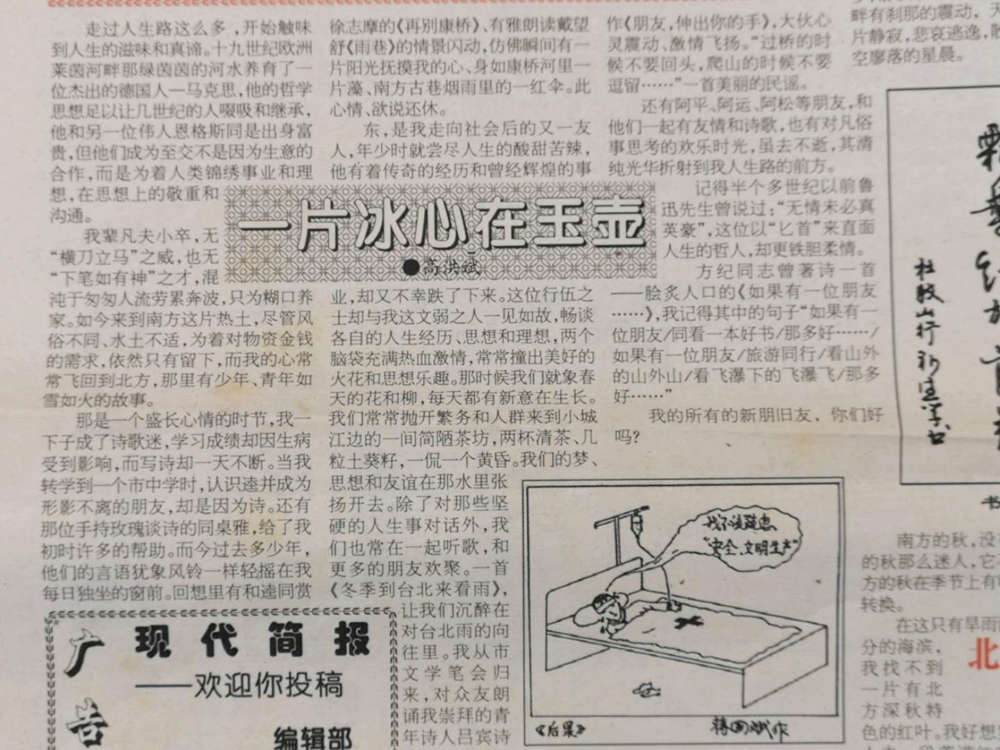 走过人生路这么多，开始触味
到人生的滋味和真谛。十九世纪欧洲
莱茵河畔那绿茵茵的河水养育了一
位杰出的德国人—马克思，他的哲学
思想足以让几世纪的人啜吸和继承，
他和另一位伟人恩格斯同是出身富
贵，但他们成为至交不是因为生意的
合作，而是为着人类锦绣事业和理
想，在思想上的敬重和
沟通。
我辈凡夫小卒，无
“横刀立马”之威，也无
“下笔如有神”之才，混
沌于匆匆人流劳累奔波，只为糊口养
家。如今来到南方这片热土，尽管风
俗不同、水土不适，为着对物资金钱
的需求，依然只有留下，而我的心常
常飞回到北方，那里有少年、青年如
雪如火的故事。
那是一个盛长心情的时节，我一
下子成了诗歌迷，学习成绩却因生病
受到影响，而写诗却一天不断。当我
转学到一个市中学时，认识逵并成为
形影不离的朋友，却是因为诗。还有
那位手持玫瑰谈诗的同桌雅，给了我
初时许多的帮助。而今过去多少年，
他们的言语犹象风铃一样轻摇在我
每日独坐的窗前。回想里有和逵同赏
徐志摩的《再别康桥》、有雅朗读戴望
舒《雨巷》的情景闪动，仿佛瞬间有一
片阳光抚摸我的心、身如康桥河里一
片藻、南方古巷烟雨里的一红伞。此
心情、欲说还休。
东，是我走向社会后的又一友
人，年少时就尝尽人生的酸甜苦辣，
他有着传奇的经历和曾经辉煌的事
一片冰心在玉壶
●高洪斌
业，却又不幸跌了下来。这位行伍之
士却与我这文弱之人一见如故，畅谈
各自的人生经历、思想和理想，两个
脑袋充满热血激情，常常撞出美好的
火花和思想乐趣。那时候我们就象春
天的花和柳，每天都有新意在生长。
我们常常抛开繁务和人群来到小城
江边的一间简陋茶坊，两杯清茶、几
粒土葵籽，一侃一个黄昏。我们的梦、
思想和友谊在那水里张
扬开去。除了对那些坚
硬的人生事对话外，我
们也常在一起听歌，和
更多的朋友欢聚。一首
《冬季到台北来看雨》，
让我们沉醉在
对台北雨的向
往里。我从市
文学笔会归
来，对众友朗
诵我崇拜的青
年诗人吕宾诗
作《朋友，伸出你的手》，大伙心
灵震动、激情飞扬。“过桥的时
候不要回头，爬山的时候不要
逗留……”一首美丽的民谣。
还有阿平、阿运、阿松等朋友，和
他们一起有友情和诗歌，也有对凡俗
事思考的欢乐时光，虽去不逝，其清
纯光华折射到我人生路的前方。
记得半个多世纪以前鲁
迅先生曾说过：“无情未必真
英豪”，这位以“匕首”来直面
人生的哲人，却更铁胆柔情。
方纪同志曾著诗一首
——脍炙人口的《如果有一位朋友
……》，我记得其中的句子“如果有一
位朋友/同看一本好书/那多好……/
如果有一位朋友/旅游同行/看山外
的山外山/看飞瀑下的飞瀑飞/那多
好……”
我的所有的新朋旧友，你们好
吗？
畔有刹那的震动，
片静寂，悲哀逃逸，
空廖落的星晨。
杜牧山行
南方的秋，没
的秋那么迷人，它
方的秋在季节上有
转换。
在这只有旱雨
分的海滨，
我找不到
一片有北
方深秋特
色的红叶。我好想
北
“安全、文明生产”
《后果》
广告
现代简报
——欢迎你投稿
编辑部